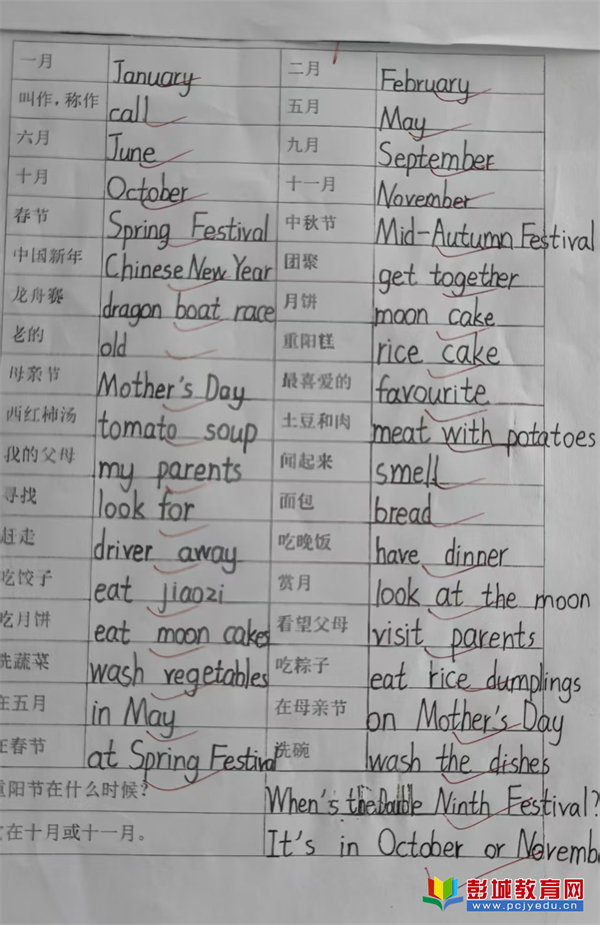 一月 January 二月 February
叫作，称作 call 五月 May
六月 June 九月 September
十月 October 十一月 November
春节 Spring Festival 中秋节 Mid-Autumn Festival
中国新年 Chinese New Year 团聚 get together
龙舟赛 dragon boat race 月饼 moon cake
老的 old 重阳糕 rice cake
母亲节 Mother's Day 最喜爱的 favourite
西红柿汤 tomato soup 土豆和肉 meat with potatoes
我的父母 my parents 闻起来 smell
寻找 look for 面包 bread
赶走 driver away 吃晚饭 have dinner
吃饺子 eat jiaozi 赏月 look at the moon
吃月饼 eat moon cakes 看望父母 visit parents
洗蔬菜 wash vegetables 吃粽子 eat rice dumplings
在五月 in May 在母亲节 on Mother's Day
在春节 at Spring Festival 洗碗 wash the dishes
重阳节在什么时候？ When's the Double Ninth Festival?
在十月或十一月。 It's in October or Novemb
彭城教育网
www.pcjyedu.cn